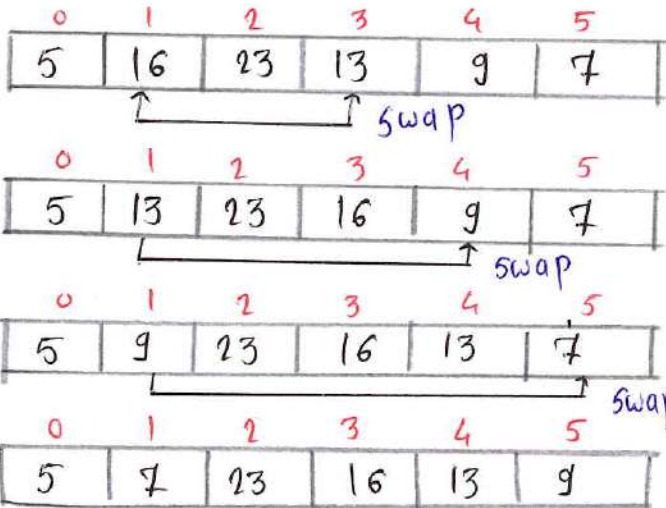 0 1 2 3 4 5
5 16 23 13 9 7
swap
0 1 2 3 4 5
5 13 23 16 9 7
swap
0 1 2 3 4 5
5 9 23 16 13 7
swap
0 1 2 3 4 5
5 7 23 16 13 9